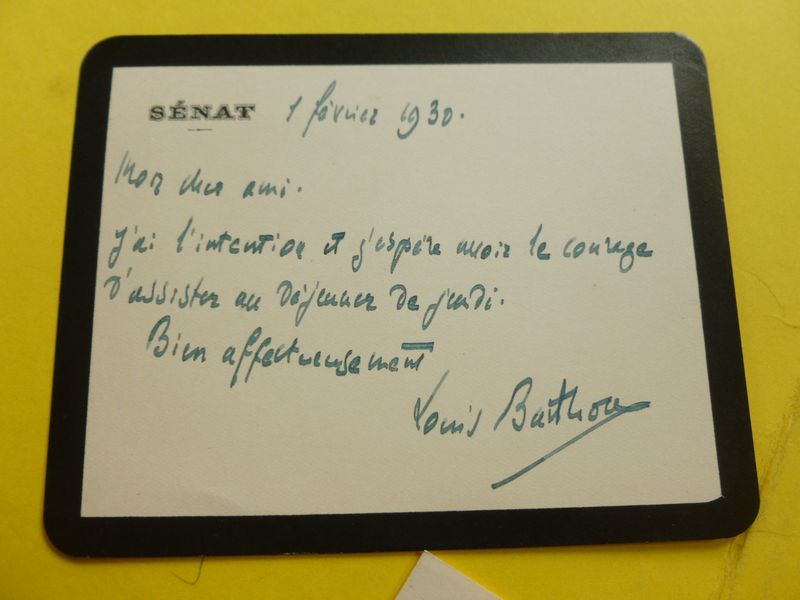 SÉNAT 1 février 1930.
Mon cher ami.
J'ai l'intention et j'espère avoir le courage
d'assister au déjeuner de jeudi.
Bien affectueusement
Louis Barthou